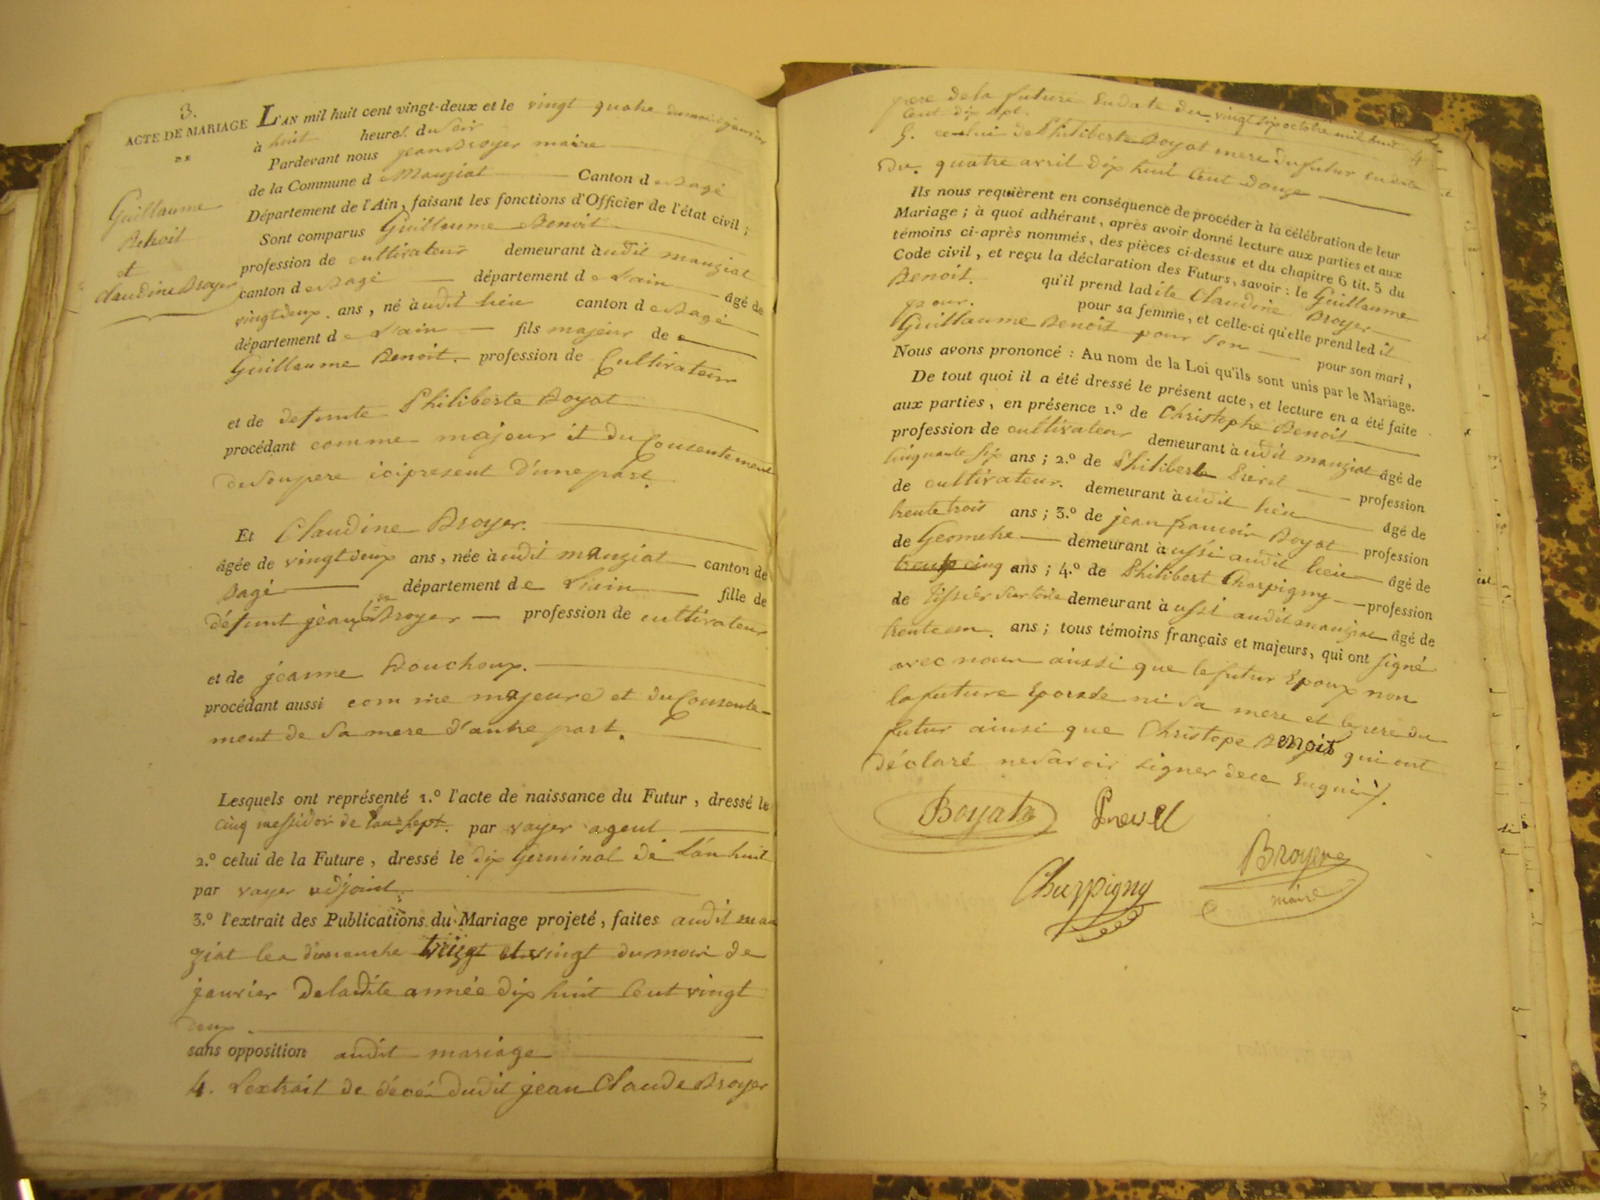 3.
ACTE DE MARIAGE
DE
Guillaume
Benoit
et
Claudine Broyer
L'AN mil huit cent vingt-deux et le vingt quatre du mois janvier
à huit heures du soir
Pardevant nous jean Broyer maire
de la Commune d e Manziat Canton d e Bagé
Département de l'Ain, faisant les fonctions d'Officier de l'état civil ;
Sont comparus Guillaume Benoit
profession de cultivateur demeurant à udit manziat
canton d e Bagé département d e L'ain âgé de
vingt deux ans, né à udit lieu canton d e Bagé
département d e L'ain fils majeur de
Guillaume Benoit. profession de Cultivateur
et de defunte Philiberte Boyat
procédant comme majeur et du Consentement
de Son pere ici present d'une part.
Et Claudine Broyer.
âgée de vingt deux ans, née à udit manziat canton de
Bagé département d e L'ain fille de
défunt jean Cde Broyer profession de cultivateur
et de jeanne Douchoux.
procédant aussi comme majeure et du Consente-
ment de Sa mere d'autre part.
Lesquels ont représenté 1.º l'acte de naissance du Futur, dressé le
cinq messidor de l'an sept. par vayer agent
2.º celui de la Future, dressé le dix Germinal de L'an huit
par vayer adjoint.
3.º l'extrait des Publications du Mariage projeté, faites audit man
ziat les dimanche treize et vingt du mois de
janvier de ladite année dix huit Cent vingt
deux
sans opposition audit mariage
4. L'extrait de décé dudit jean Claude Broyer
pere de la future En date du vingt Six octobre mil huit
Cent dix Sept.
5. celui de Philiberte Boyat mere du futur en date
Du. quatre avril dix huit Cent douze
Ils nous requièrent en conséquence de procéder à la célébration de leur
Mariage ; à quoi adhérant, après avoir donné lecture aux parties et aux
témoins ci-après nommés, des pièces ci-dessus et du chapitre 6 tit. 5 du
Code civil, et reçu la déclaration des Futurs, savoir : le Guillaume
Benoit. qu'il prend ladite Claudine Broyer
pour. pour sa femme, et celle-ci qu'elle prend led it
Guillaume Benoit pour Son pour son mari,
Nous avons prononcé : Au nom de la Loi qu'ils sont unis par le Mariage.
De tout quoi il a été dressé le présent acte, et lecture en a été faite
aux parties, en présence 1.º de Christophe Benoit
profession de cultivateur demeurant à udit manziat âgé de
Cinquante Six ans ; 2.º de Philibert profession
de cultivateur. demeurant à udit lieu âgé de
trente trois ans ; 3.º de jean francois Boyat profession
de Geometre demeurant à ussi audit lieu âgé de
cinq ans ; 4.º de Philibert Charpigny profession
de Tissier Sur toile demeurant à ussi audit manziat âgé de
trente un. ans ; tous témoins français et majeurs, qui ont signé
avec nous ainsi que le futur Epoux non
la future Epouse ni Sa mere et le pere du
futur ainsi que Christope Benoit qui ont
déclaré ne Savoir signer de ce Enquis.
Boyat
Charpigny
Broyer
maire